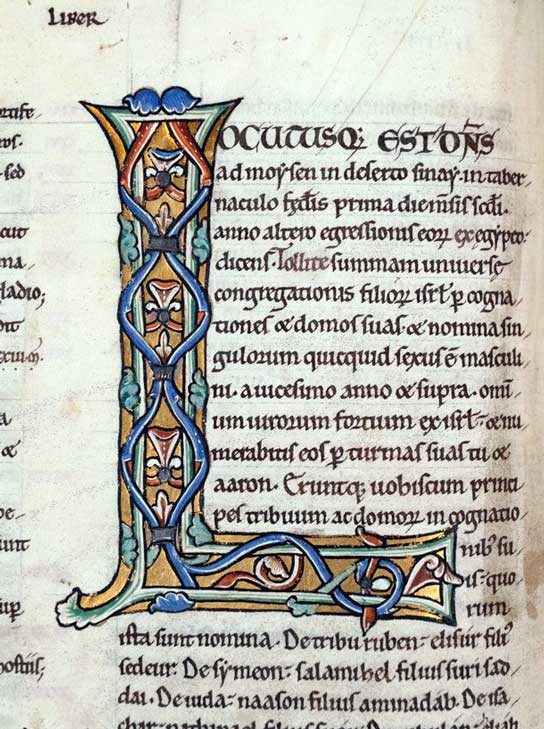 Liber
LOCUTUSQ; EST DN̄S
ad moẏsen in deserto sinaẏ. in taber-
naculo fęd̄is prima die m̄sis sc̄di.
anno altero egressionis eoꝝ ex egẏpto.
dicens. Tollite summam universę
congregationis filioꝝ isr̄l. ꝑ cogna-
tiones & domos suas. & nomina sin-
gulorum quicquid sexus ē masculi-
ni. a uicesimo anno & supra. om̄i-
um uirorum fortium ex isr̄l. & nu-
merabitis eos ꝑ turmas suas tu &
aaron. Eruntq; uobiscum princi-
pes tribuum ac domoꝝ in cognatio-
nib; su-
is. quo-
rum
ista sunt nomina. De tribu ruben. elisur fili᷒
sedeur. De sẏmeon. salamihel filius suri sad-
dai. De iuda. naason filius aminadab. De isa-